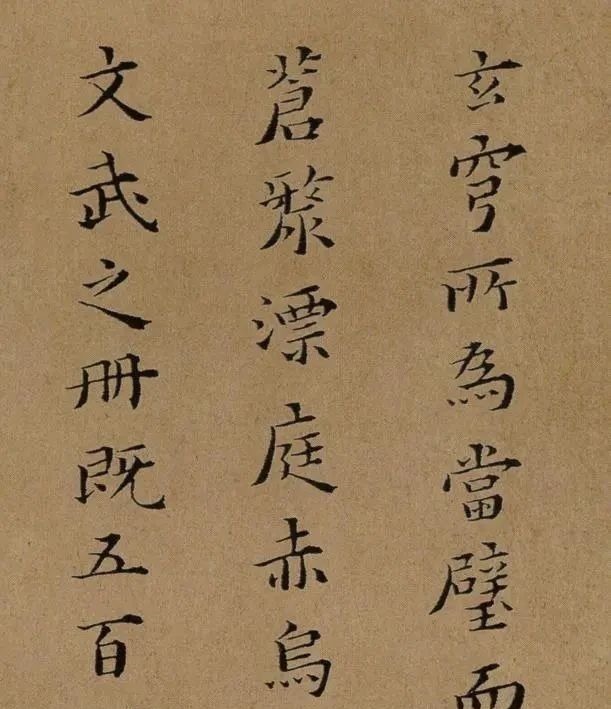 玄穹所為當璧而
蒼漦漂庭赤烏
文武之冊既五百